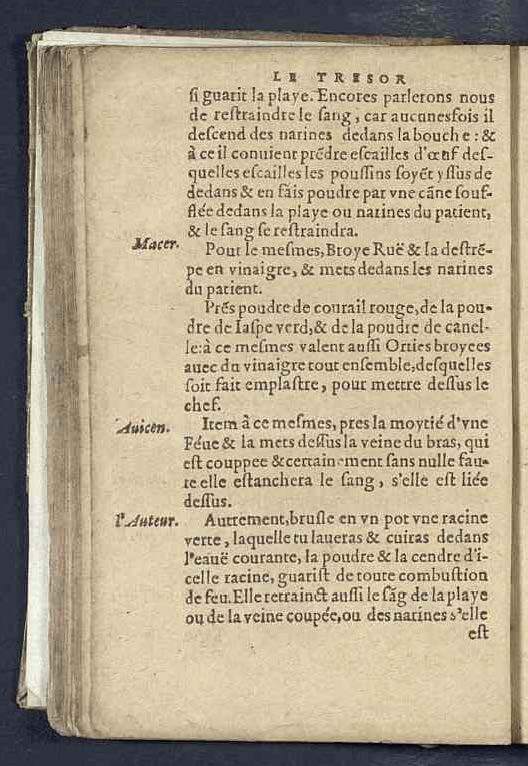 LE TRESOR
ſi guarit la playe. Encores parlerons nous
de reſtraindre le ſang, car aucunesfois il
deſcend des narines dedans la bouche : &
à ce il conuient prẽdre eſcailles d'œuf deſ-
quelles eſcailles les pouſſins ſoyẽt yſſus de
dedans & en fais poudre par vne cãne ſouf-
flée dedans la playe ou narines du patient,
& le ſang ſe reſtraindra.
Macer.
Pour le meſmes, Broye Ruë & la deſtrẽ-
pe en vinaigre, & mets dedans les narines
du patient.
Prés poudre de courail rouge, de la pou-
dre de Iaſpe verd, & de la poudre de canel-
le: à ce meſmes valent auſſi Orties broyees
auec du vinaigre tout enſemble, deſquelles
ſoit fait emplaſtre, pour mettre deſſus le
chef.
Auicen.
Item à ce meſmes, pres la moytié d'vne
Féue & la mets deſſus la veine du bras, qui
eſt couppee & certainement ſans nulle fau-
te elle eſtanchera le ſang, s'elle eſt liée
deſſus.
l'Auteur.
Autrement, bruſle en vn pot vne racine
verte, laquelle tu laueras & cuiras dedans
l'eauë courante, la poudre & la cendre d'i-
celle racine, guariſt de toute combuſtion
de feu. Elle retrainct auſſi le ſãg de la playe
ou de la veine coupée, ou des narines s'elle
eſt